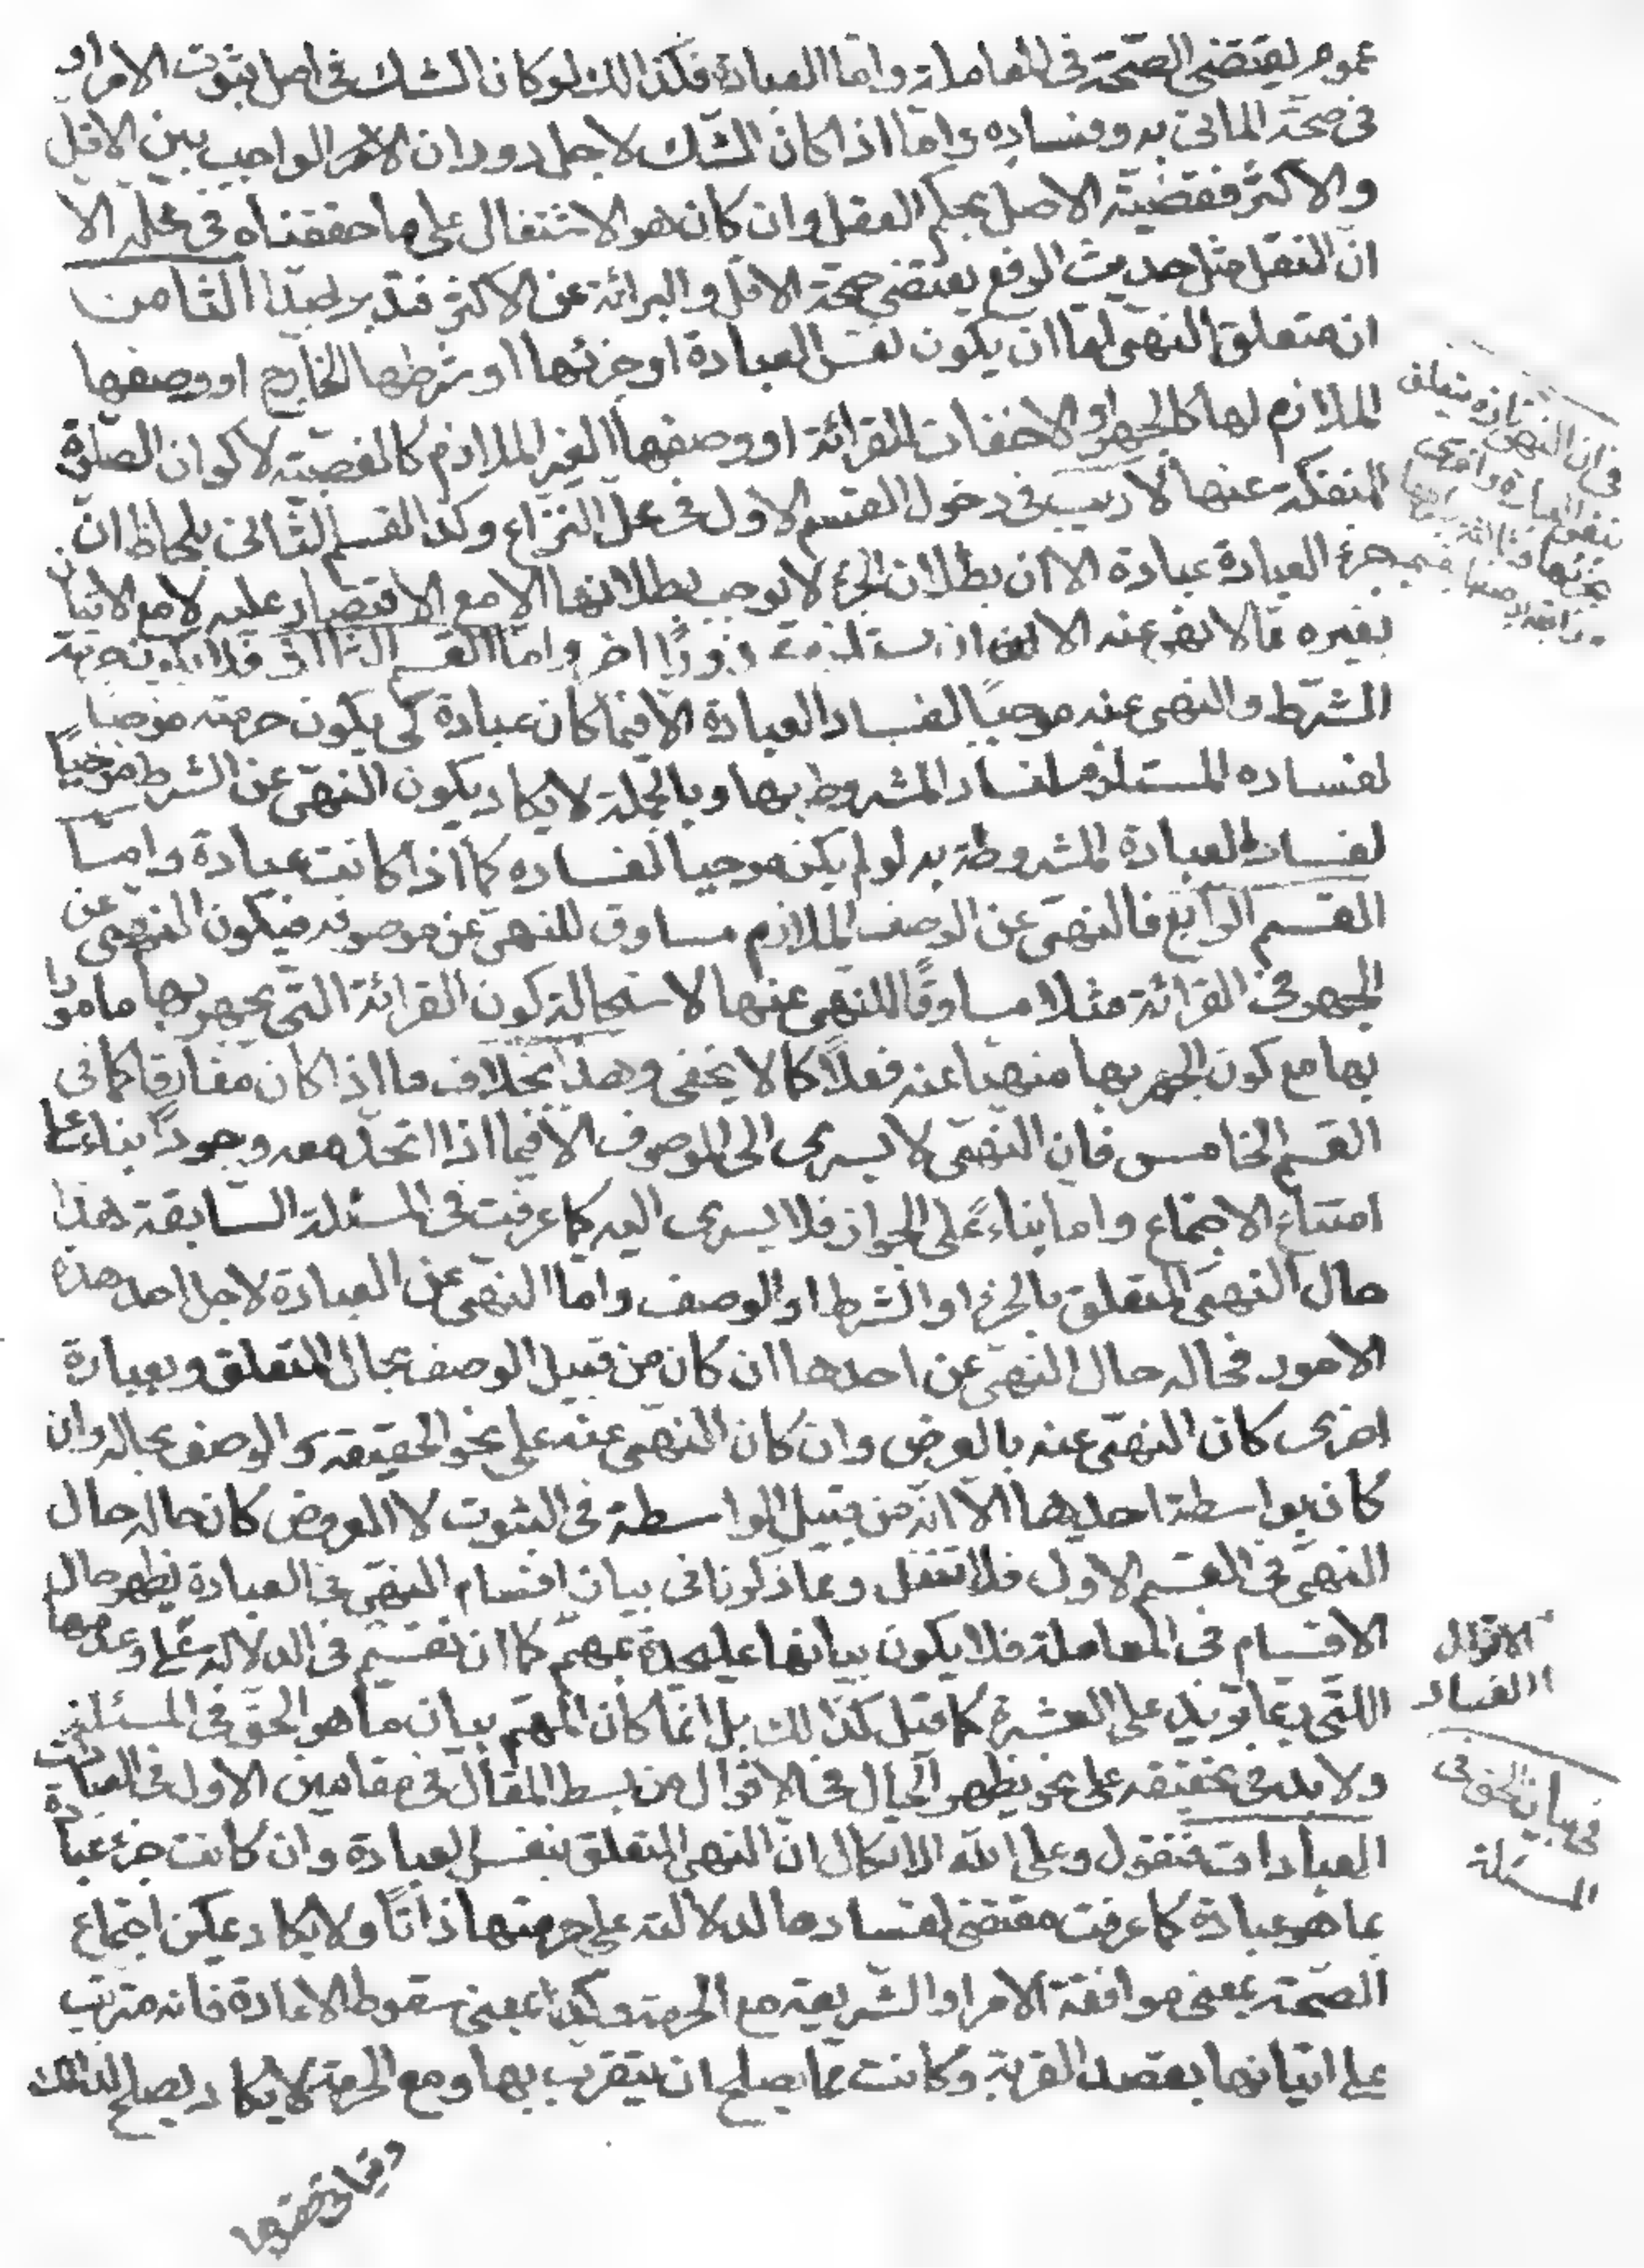 عموم يقتضى الصّحّة فى المعاملة وامّا العبادة فكذالك لوكان الشك فى اصل ثبوت الامر او
فى صحّة الماتى به وفساده وامّا اذا كان الشّك لاجل دوران الامر الواجب بين الاقلّ
والاكثر فقضيّة الاصل بحكم العقل وان كان هو الاشتغال على ما حققناه فى محلّه الا
انّ النقل مثل حديث الرفع يقتضى صحّة الاقل والبرائة عن الاكثر فتدبر جيّدا الثامن
ان متعلق النهى امّا ان يكون نفس العبادة او جزئها او شرطها الخارج او وصفها
الملازم لها كالجهر او الاخفات للقرائة او وصفها الغير الملازم كالغصبيّة لاكوان الصّلوة
المنفكّة عنها لا ريب فى دخول القسم الاول فى محلّ النّزاع وكذا القسم الثّانى بلحاظ انّ
جزء العبادة عبادة الا ان بطلان الجزء لا يوجب بطلانها الا مع الاقتصار عليه لا مع الاتيان
بغيره ممّا لا نهى عنه الا ان يستلزم محذورًا اخر وامّا القسم الثالث فلا يكون حرمة
الشّرط والنهى عنه موجبًا لفساد العبادة الّا فيما كان عبادة كى يكون حرمته موجبا
لفساده المستلزم لفساد المشروط بها وبالجملة لا يكاد يكون النّهى عن الشرط موجبًا
لفساد العبادة المشروطة به لو لم يكن موجبا لفساده كما اذا كانت عبادة وامّا
القسم الرّابع فالنهى عن الوصف الملازم مساوق للنهى عن موصوفه فيكون النّهى عن
الجهر فى القرائة مثلا مساوقًا للنهى عنها لاستحالة كون القرائة التّى يجهر بها مامورا
بها مع كون الجهر بها منهيّا عنه فعلًا كما لا يخفى وهذا بخلاف ما اذا كان مفارقا كما فى
القسم الخامس فان النّهى لا يسرى الى الموصوف الّا فيما اذا اتحد معه وجودًا بناء على
امتناع الاجتماع واما بناءً على الجواز فلا يسرى اليه كما عرفت فى المسئلة السّابقة هذا
حال النّهى المتعلق بالجزء او الشرط او الوصف وامّا النهى عن العبادة لاجل احد هذه
الامور فحاله حال النهى عن احدها ان كان من قبيل الوصف بحال المتعلق وبعبارة
اخرى كان النهى عنه بالعرض وان كان النهى عنه على نحو الحقيقة والوصف بحاله وان
كان بواسطة احديها الّا انّه من قبيل الواسطة فى الثبوت لا العروض كان حاله حال
النهى فى القسم الاول فلا تغفل وممّا ذكرنا فى بيان اقسام النهى فى العبادة يظهر حال
الاقسام فى المعاملة فلا يكون بيانها على حدة بمهمّ كما ان تقسيم فى الدلالة على وعدمها
اللتّى ربما تزيد على العشرة كما قيل كذالك بل انّما كان المهمّ بيان ما هو الحقّ فى المسئلة
ولا بد فى تحقيقه على نحو يظهر الحال فى الاقوال من بسط المقال فى مقامين الاول فى
العبادات فنقول وعلى الله الاتكال انّ النهى المتعلق بنفس العبادة وان كانت جزء عبادة
بما هو عبادة كما عرفت مقتضى لفسادها لدلالته على حرمتها ذاتًا ولا يكاد يمكن اجتماع
الصّحّة بمعنى موافقة الامر او الشّريعة مع الحرمة وكذا بمعنى سقوط الاعادة فانه مترتب
على اتيانها بقصد القربة وكانت ممّا يصلح ان يتقرّب بها ومع الحرمة لا يكاد يصلح لذالك
الاقوال
الفساد
فى بيان الحق فى
المسئلة